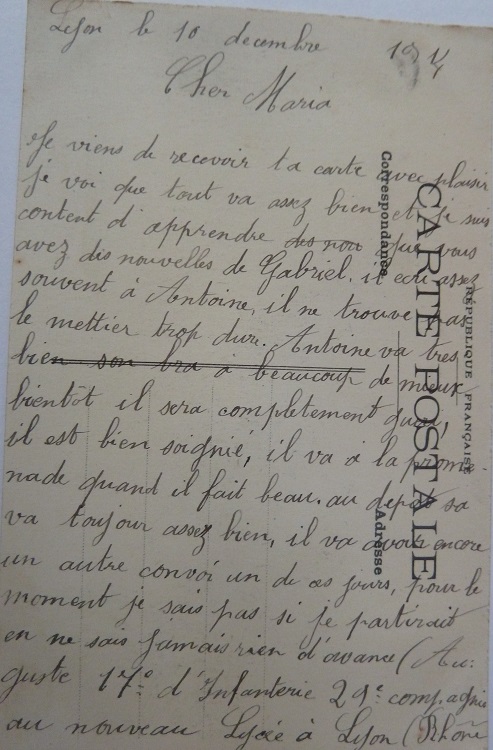 Lyon le 10 decembre 19 4
Cher Maria
Je viens de recevoir ta carte avec plaisir
je voi que tout va assez bien et je suis
content d'apprendre des nou que vous
avez dis nouvelles de Gabriel. il ecri assez
souvent à Antoine, il ne trouve pas
le mettier trop dur. Antoine va tres
bien son bra à beaucoup de mieux
bientôt il sera completement gueri,
il est bien soignié, il va a la prome-
nade quand il fait beau. au depôt sa
va toujour assez bien, il va avoir encore
un autre convoi un de ces jours, pour le
moment je sais pas si je partirait
en ne sais jamais rien d'avance (Au:
guste 17e d'Infanterie 29e compagnie
au nouveau Lycée à Lyon (Rhône
CARTE POSTALE
RÉPUBLIQUE FRANÇAISE
Correspondance
Adresse